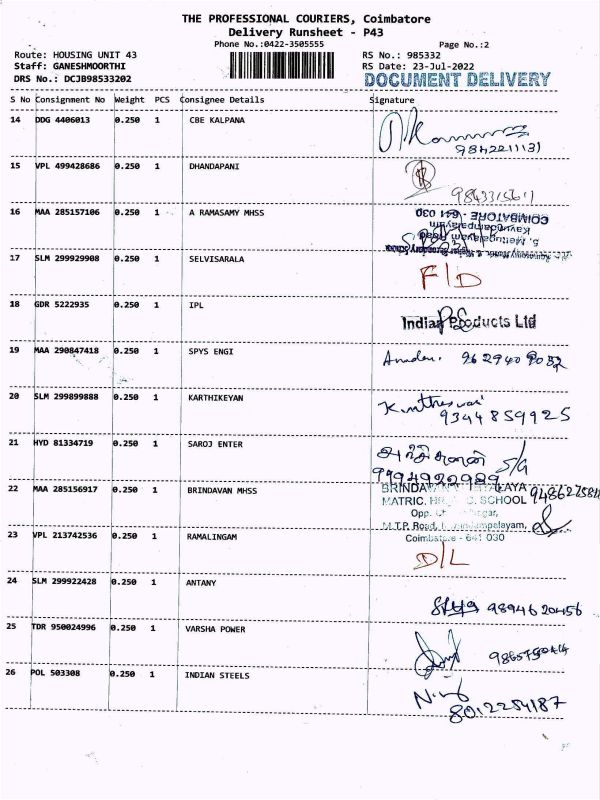 THE PROFESSIONAL COURIERS, Coimbatore
Delivery Runsheet - P43
Phone No.:0422-3505555
Page No.:2
Route: HOUSING UNIT 43
RS No.: 985332
Staff: GANESHMOORTHI
RS Date: 23-Jul-2022
DRS No.: DCJB98533202
DOCUMENT DELIVERY
S No Consignment No Weight PCS Consignee Details Signature
14 DDG 4406013 0.250 1 CBE KALPANA
9842211131
15 VPL 499428686 0.250 1 DHANDAPANI
16 MAA 285157106 0.250 1 A RAMASAMY MHSS
COIMBATORE - 641 030
17 SLM 299929908 0.250 1 SELVISARALA
F/D
18 GDR 5222935 0.250 1 IPL
Indian Products Ltd
19 MAA 290847418 0.250 1 SPYS ENGI
9629409082
20 SLM 299899888 0.250 1 KARTHIKEYAN
9344859925
21 HYD 81334719 0.250 1 SAROJ ENTER
9994922989
22 MAA 285156917 0.250 1 BRINDAVAN MHSS
MATRIC. SCHOOL
Opp.
M.T.P. Road,
Coimbatore - 641 030
23 VPL 213742536 0.250 1 RAMALINGAM
D/L
24 SLM 299922428 0.250 1 ANTANY
9894620456
25 TDR 950024996 0.250 1 VARSHA POWER
26 POL 503308 0.250 1 INDIAN STEELS
8012254187